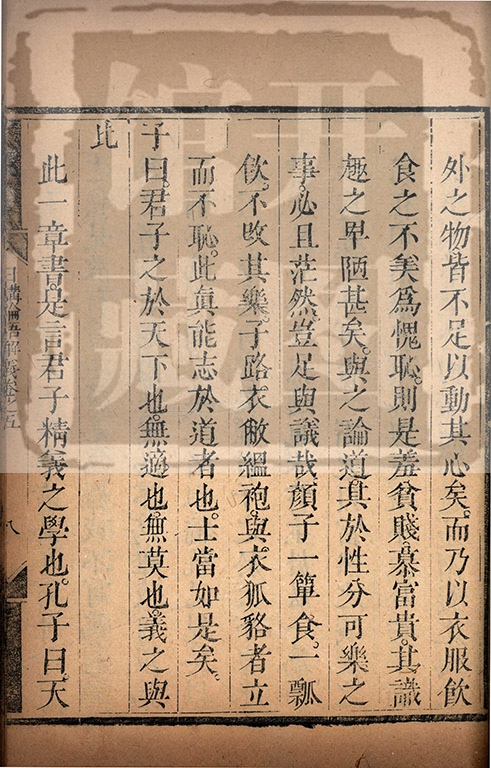 外之物皆不足以動其心矣。而乃以衣服飲
食之不美爲愧恥。則是羞貧賤。慕富貴。其識
趣之卑陋甚矣。與之論道。其於性分可樂之
事。必且茫然。豈足與議哉。顏子一簞食。一瓢
飲。不改其樂。子路衣敝縕袍。與衣狐貉者立
而不恥。此眞能志於道者也。士當如是矣。
子曰。君子之於天下也。無適也。無莫也。義之與
比
此一章書。是言君子精義之學也。孔子曰。天
日講論語解義卷之五
八
開
館
藏